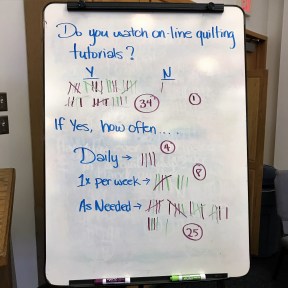 Do you watch on-line quilting
tutorials?
Y N
34 1
If Yes, how often....
Daily → 4
1x per week → 8
As Needed → 25